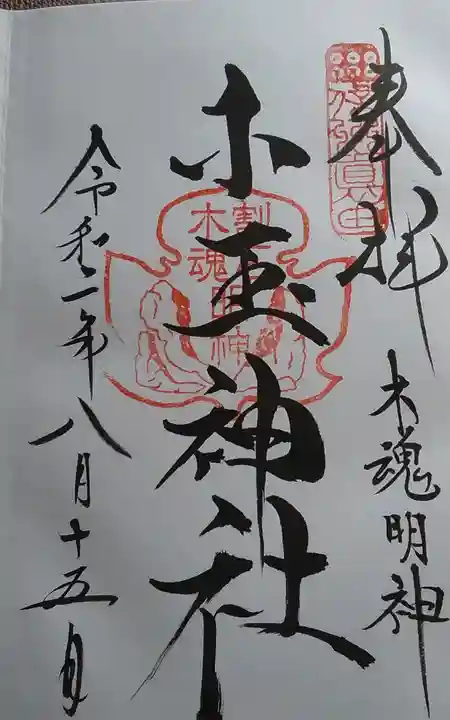 奉拝
木魂明神
木玉神社
木魂明神
令和二年八月十五日